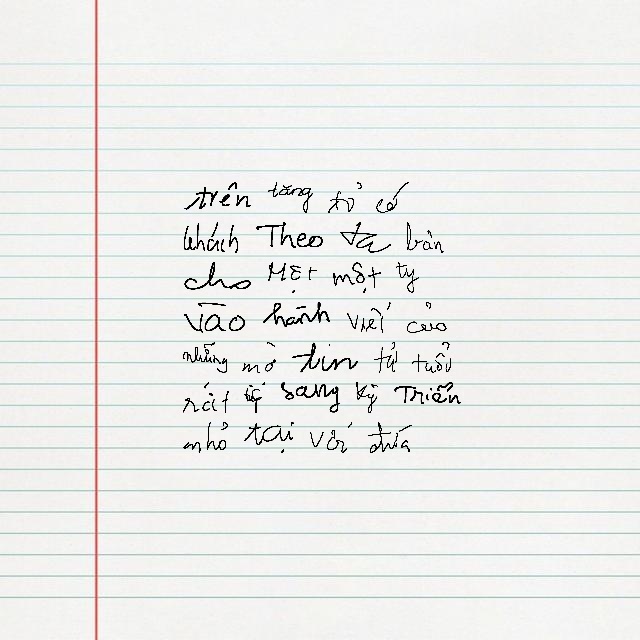 trên tăng tỏ có
khách Theo ta bàn
cho Mệt một ty
vào hành viết của
những mờ tin tử tuổi
rát sang kỳ Triển
nhỏ tại với đưa